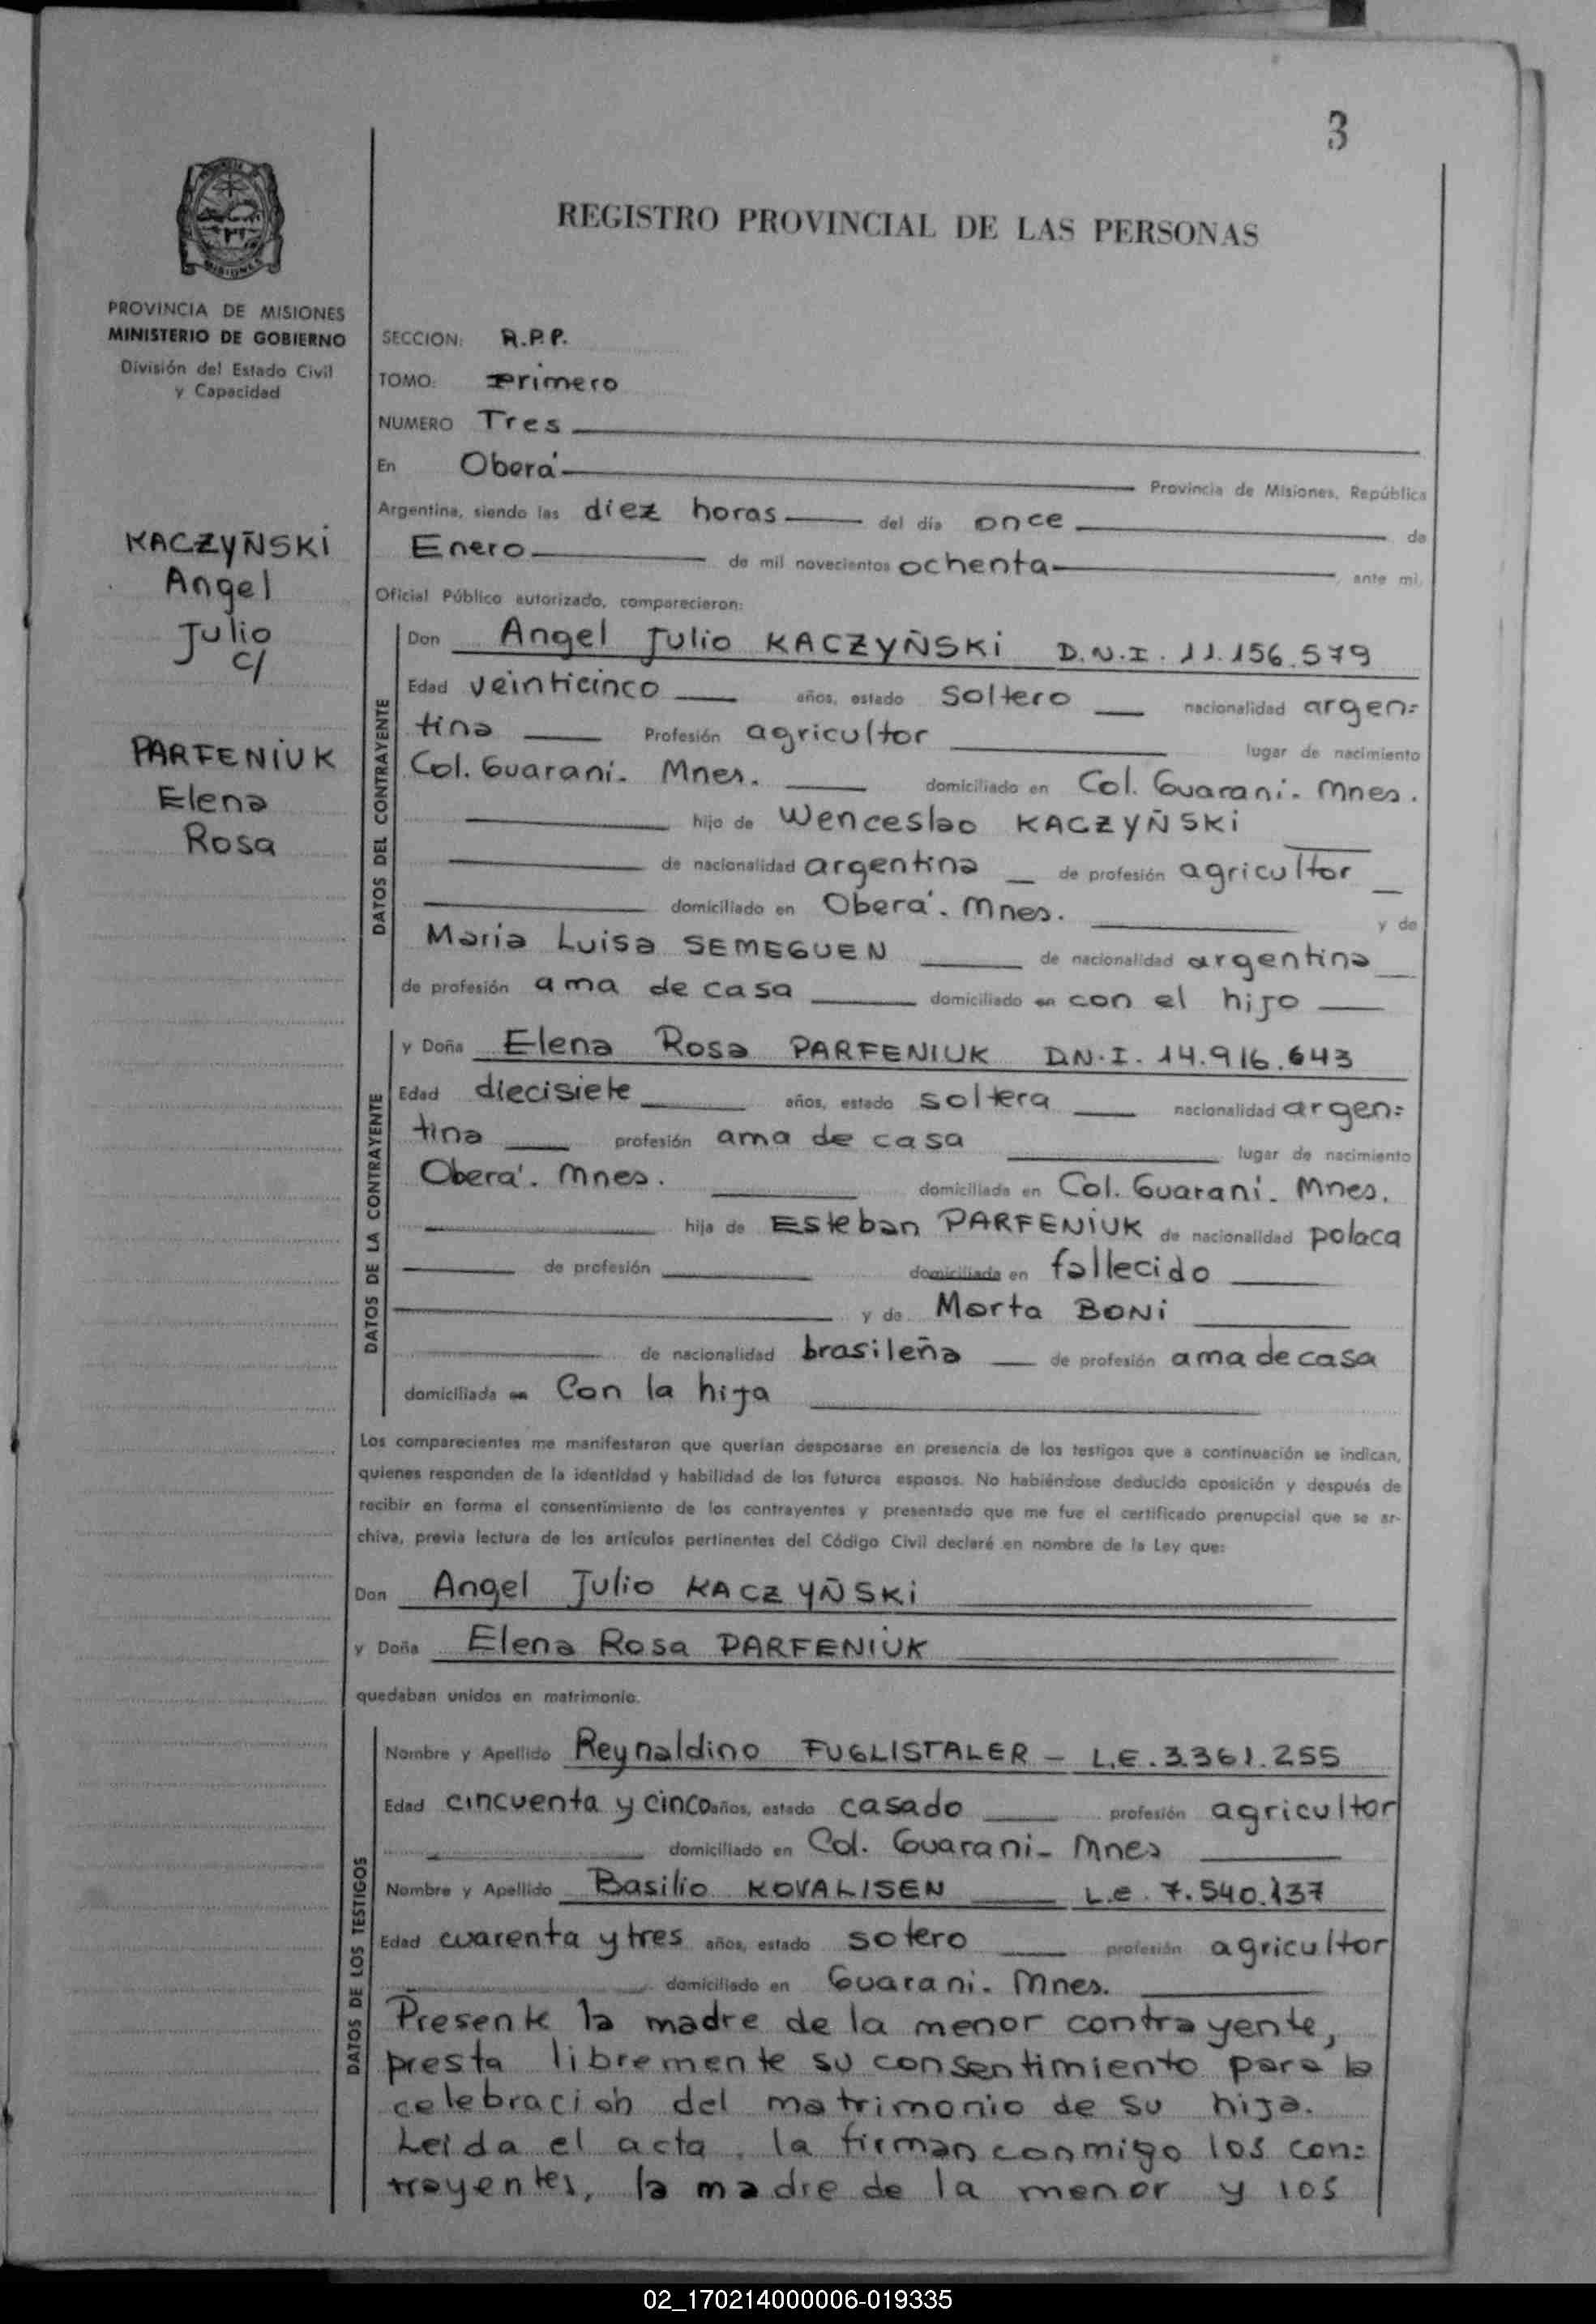 3
REGISTRO PROVINCIAL DE LAS PERSONAS
MISIONES
PROVINCIA DE MISIONES
MINISTERIO DE GOBIERNO
División del Estado Civil
y Capacidad
KACZYÑSKi
Angel
Julio
c/
PARFENiUK
Elena
Rosa
SECCION: R.P.P.
TOMO: Primero
NUMERO Tres
En Oberá Provincia de Misiones, República
Argentina, siendo las diez horas del día once de
Enero de mil novecientos ochenta, ante mí,
Oficial Público autorizado, comparecieron:
DATOS DEL CONTRAYENTE
Don Angel Julio KACZYÑSKi D.N.I. 11.156.579
Edad veinticinco años, estado Soltero nacionalidad argen=
tina Profesión agricultor lugar de nacimiento
Col. Guaraní. Mnes. domiciliado en Col. Guaraní. Mnes.
hijo de Wenceslao KACZYÑSKi
de nacionalidad argentina de profesión agricultor
domiciliado en Oberá. Mnes. y de
Maria Luisa SEMEGUEN de nacionalidad argentina
de profesión ama de casa domiciliado en con el hijo
DATOS DE LA CONTRAYENTE
y Doña Elena Rosa PARFENIUK D.N.I. 14.916.643
Edad diecisiete años, estado soltera nacionalidad argen=
tina profesión ama de casa lugar de nacimiento
Oberá. Mnes. domiciliada en Col. Guaraní. Mnes.
hija de Esteban PARFENiUK de nacionalidad polaca
de profesión domiciliada en fallecido
y de Marta BONi
de nacionalidad brasileña de profesión ama de casa
domiciliada en Con la hija
Los comparecientes me manifestaron que querían desposarse en presencia de los testigos que a continuación se indican,
quienes responden de la identidad y habilidad de los futuros esposos. No habiéndose deducido oposición y después de
recibir en forma el consentimiento de los contrayentes y presentado que me fue el certificado prenupcial que se ar-
chiva, previa lectura de los artículos pertinentes del Código Civil declaré en nombre de la Ley que:
Don Angel Julio KACZYÑSKi
y Doña Elena Rosa PARFENIUK
quedaban unidos en matrimonio.
DATOS DE LOS TESTIGOS
Nombre y Apellido Reynaldino FUGLISTALER - L.E. 3.361.255
Edad cincuenta y cinco años, estado casado profesión agricultor
domiciliado en Col. Guaraní- Mnes
Nombre y Apellido Basilio KOVALISEN L.e. 7.540.137
Edad cuarenta y tres años, estado sotero profesión agricultor
domiciliado en Guaraní. Mnes.
Presente la madre de la menor contrayente,
presta libremente su consentimiento para la
celebración del matrimonio de su hija.
Leida el acta, la firman conmigo los con=
trayentes, la madre de la menor y los
02_170214000006-019335